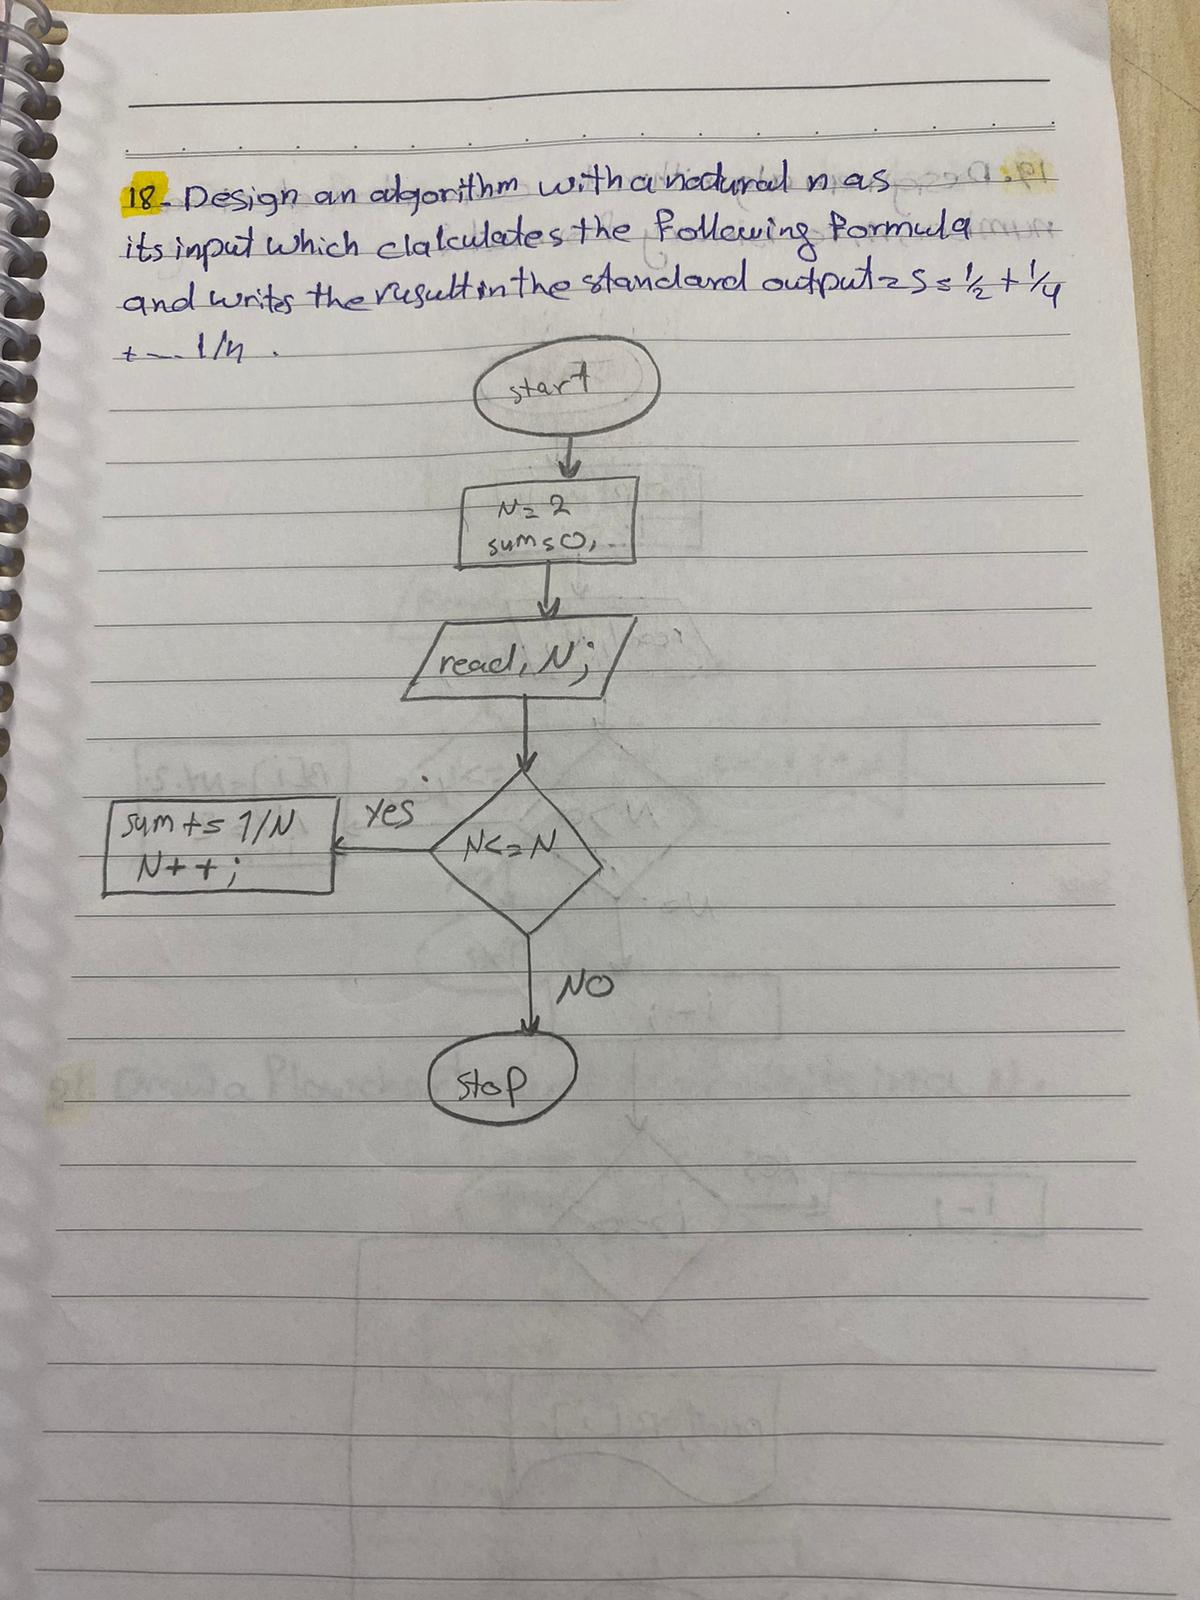 18- Design an algorithm with a natural n as
its input which clalculates the following formula
and writes the result in the standard output = S = 1/2 + 1/4
+ --- 1/n .
start
N = 2
sum = 0;
read, N;
N <= N
yes
sum += 1/N
N++;
NO
stop